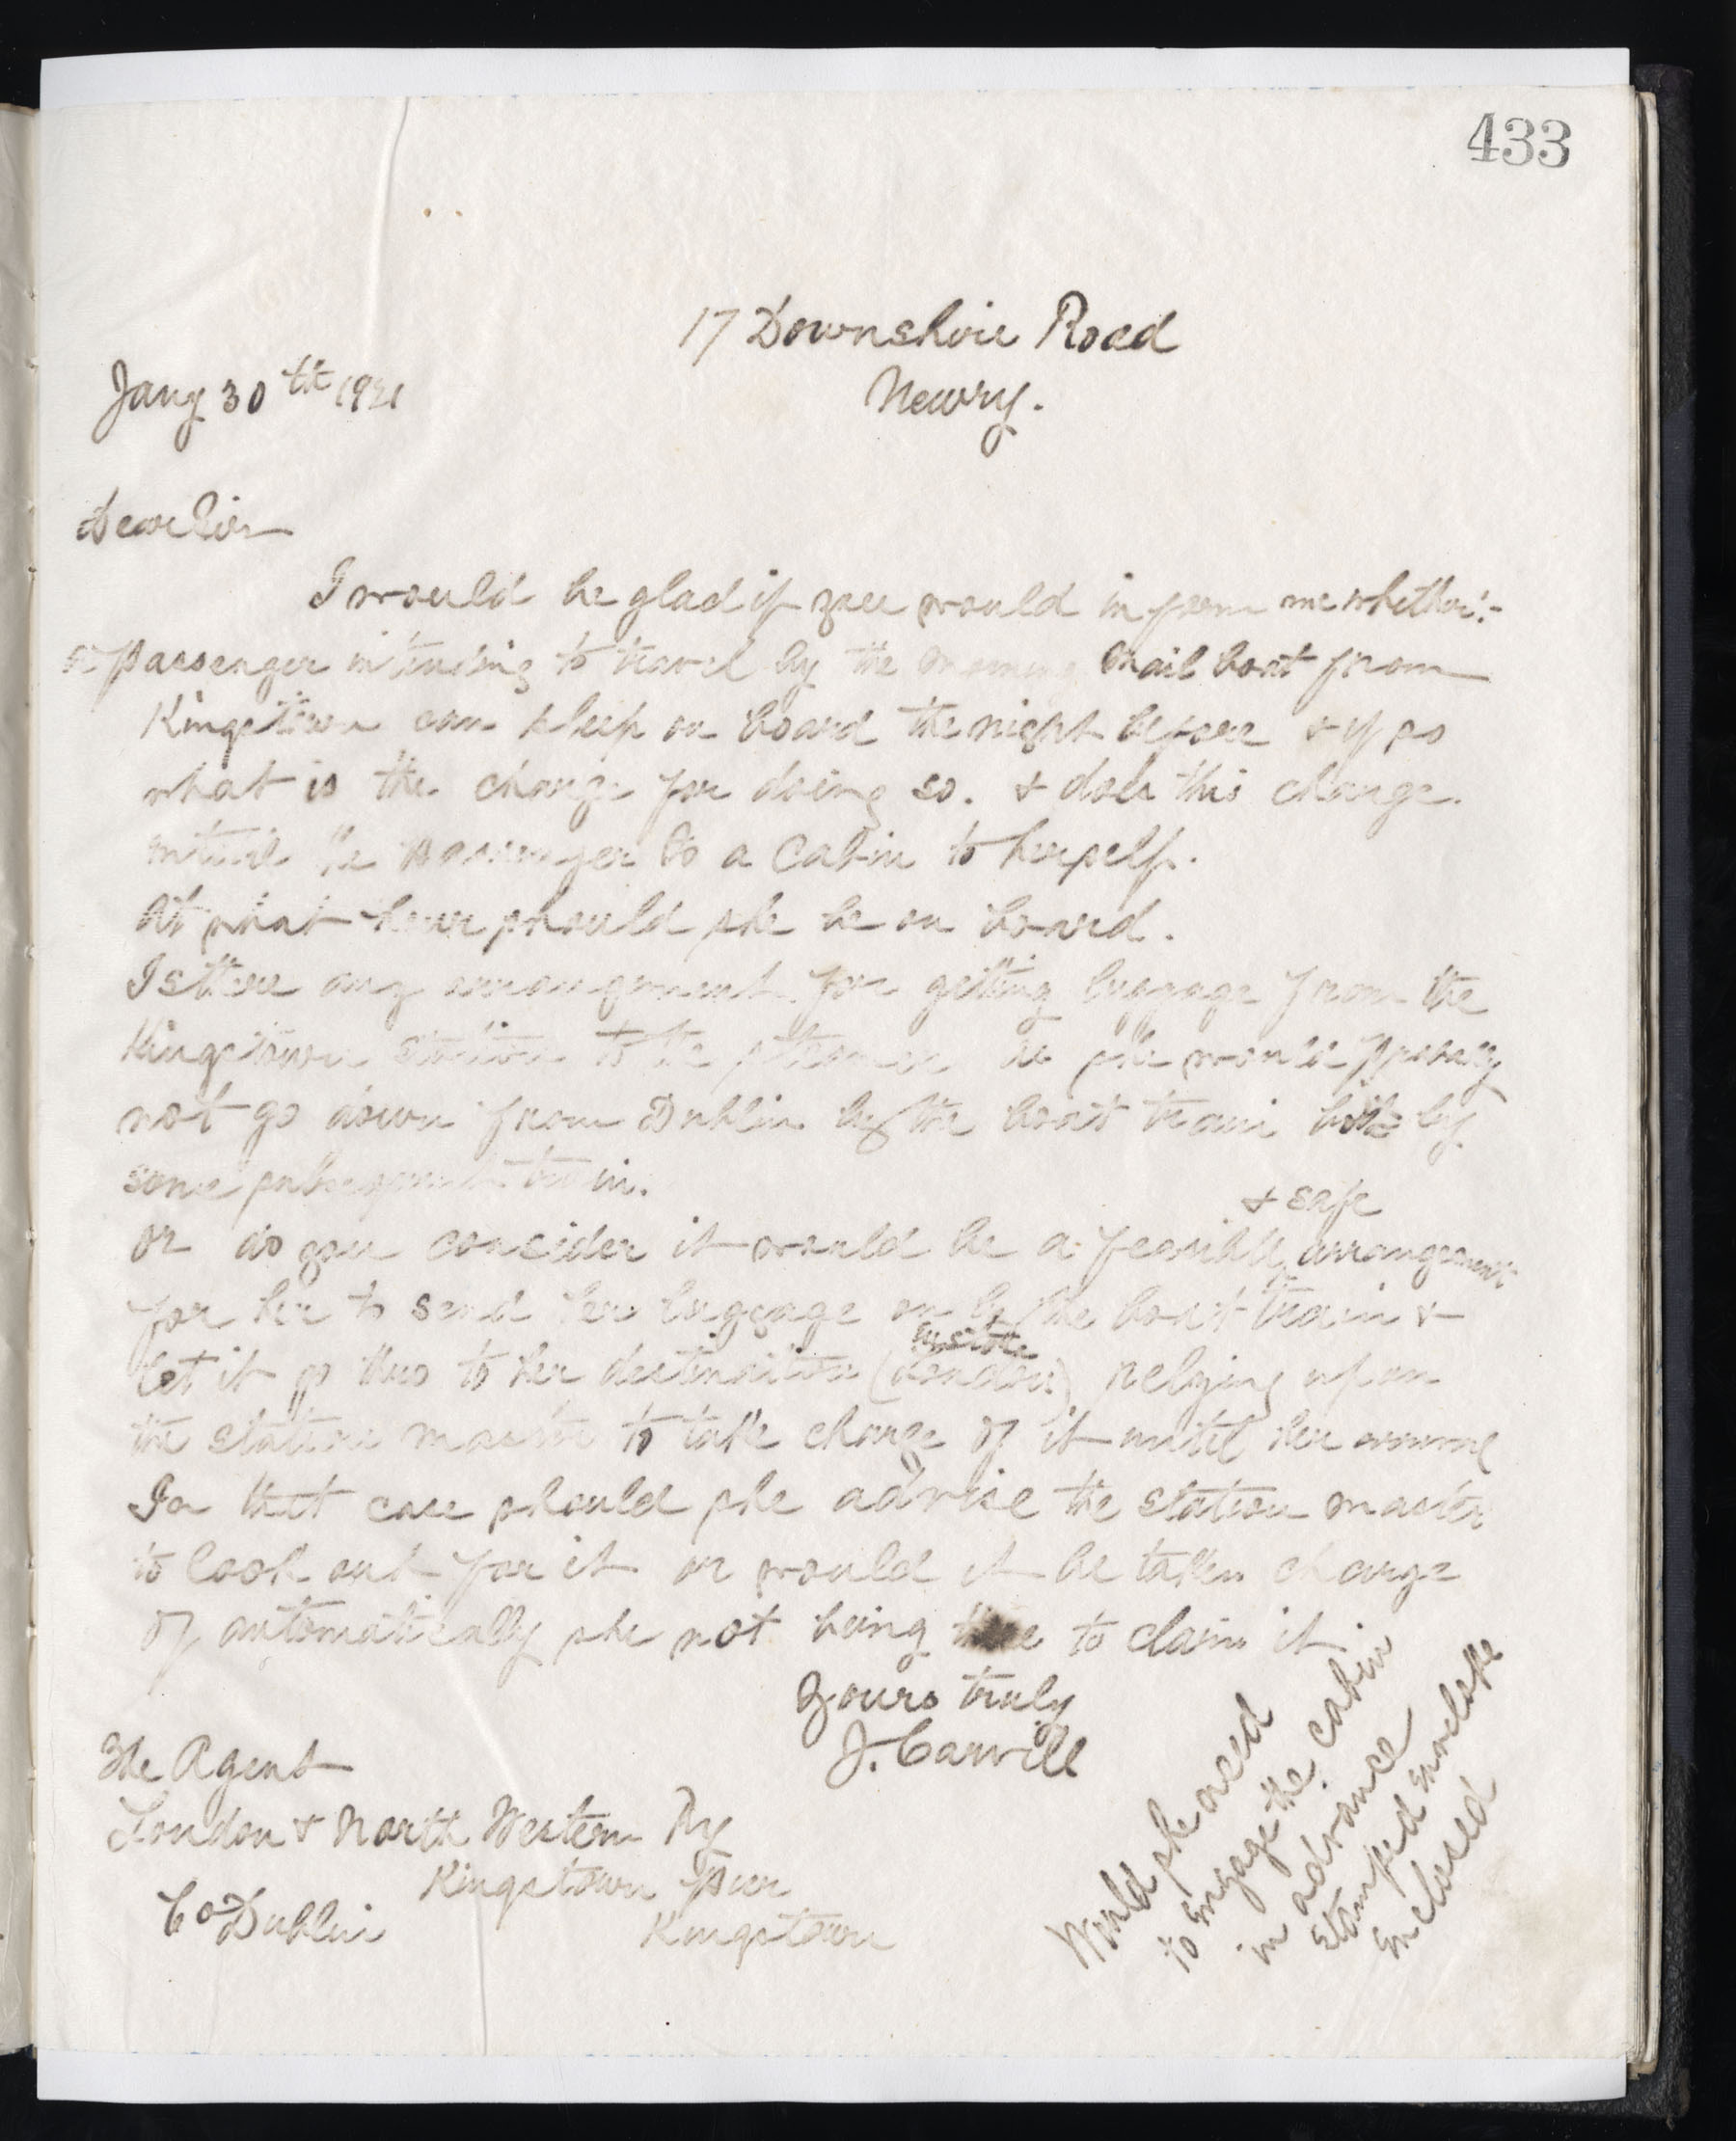 433
17 Downshire Road
Newry.
Jany 30th 1921
Dear Sir
I would be glad if you would inform me whether:-
a passenger intending to travel by the morning mail boat from
Kingstown can sleep on board the night before & if so
what is the charge for doing so. & does this charge
entitle the passenger to a Cabin to herself.
At what hour should she be on board.
Is there any arrangement for getting luggage from the
Kingstown station to the steamer as she would possibly
not go down from Dublin by the boat train but by
some subsequent train.
& safe
or do you consider it would be a feasible arrangement
for her to send her luggage on by the boat train &
let it go thro to her destination (London) relying upon
Euston
the station master to take charge of it until her arrival
In that case should she advise the station master
to look out for it or would it be taken charge
of automatically she not being there to claim it.
Yours truly
J. Carvill
The Agent
London & North Western Ry
Kingstown Pier
Kingstown
Co Dublin
Would she need
to engage the cabin
in advance
Stamped Envelope
Enclosed